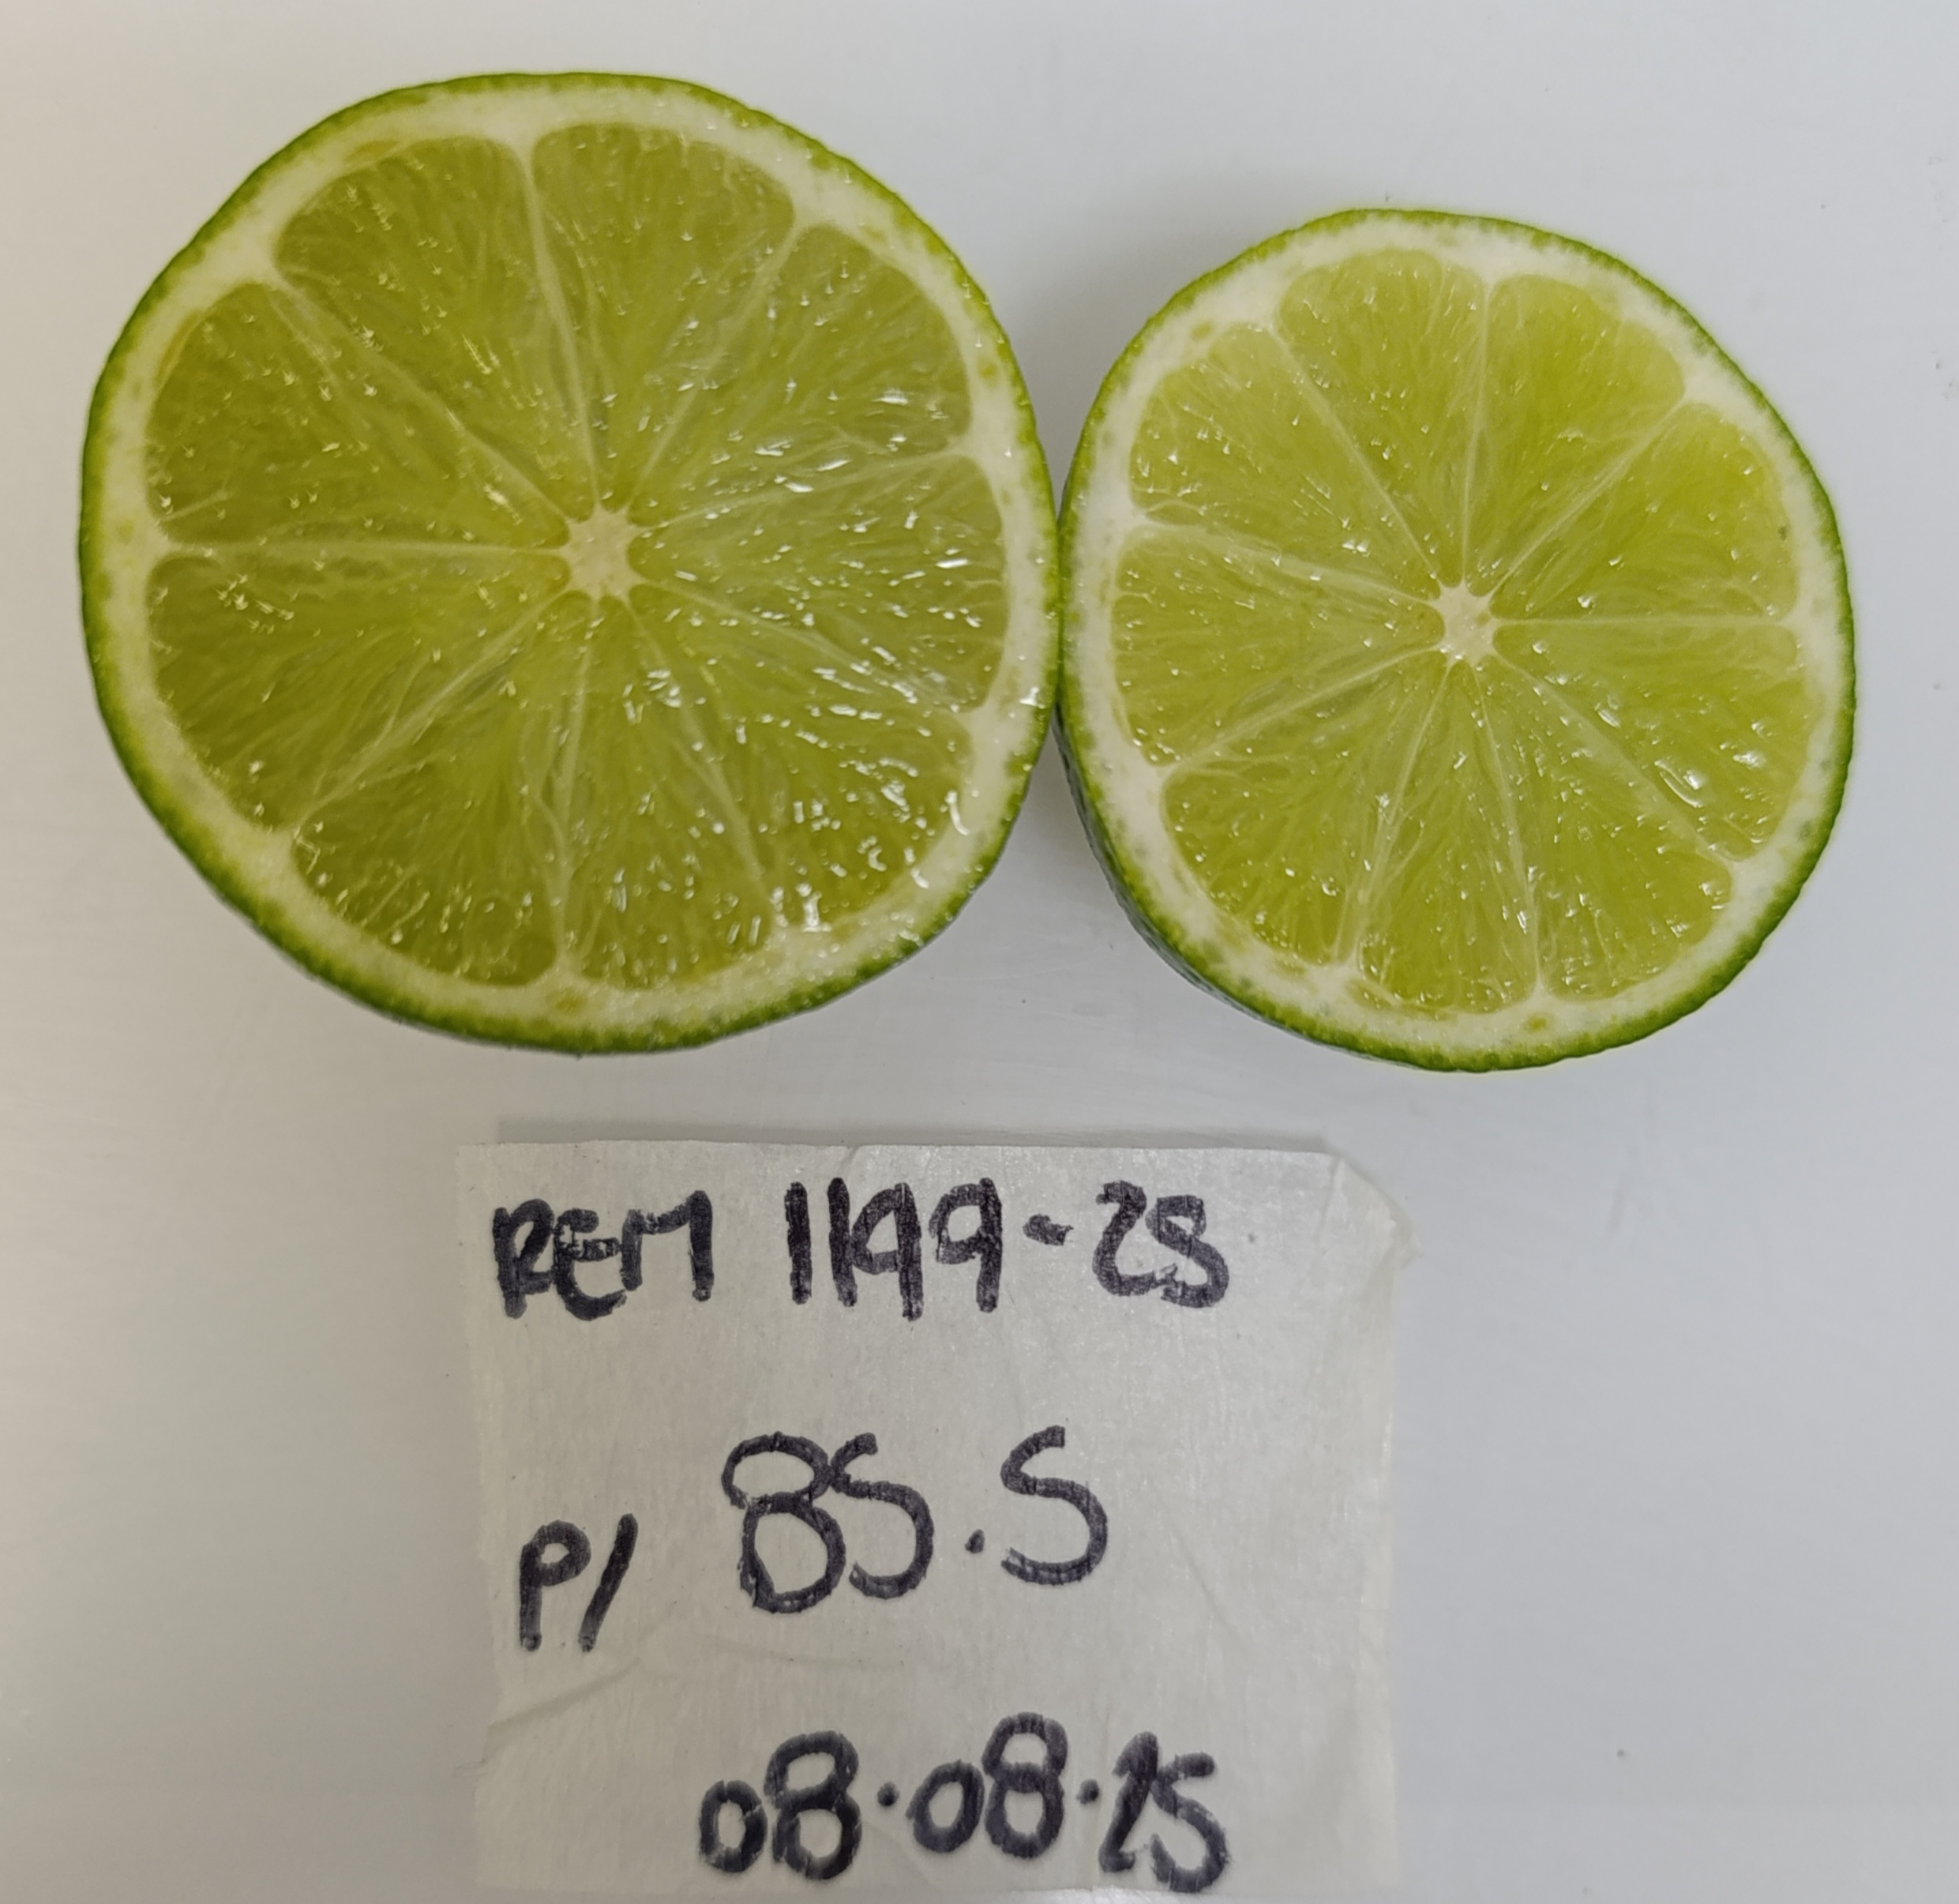 REM 1199-25
P/ 85.5
08.08.25